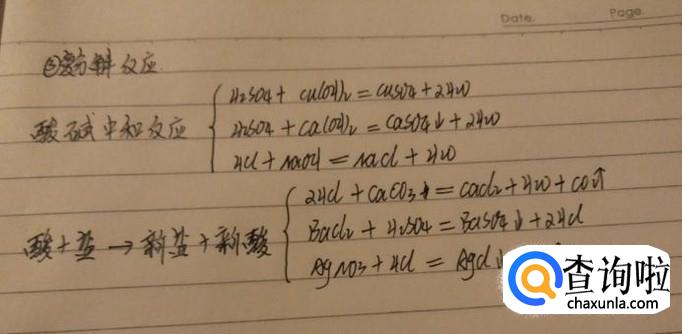 Date. Page.
③复分解反应
酸碱中和反应
H₂SO₄ + Cu(OH)₂ = CuSO₄ + 2H₂O
H₂SO₄ + Ca(OH)₂ = CaSO₄↓ + 2H₂O
HCl + NaOH = NaCl + H₂O
酸+盐→新盐+新酸
2HCl + CaCO₃↓ = CaCl₂ + H₂O + CO₂↑
BaCl₂ + H₂SO₄ = BaSO₄↓ + 2HCl
AgNO₃ + HCl = AgCl↓
查询啦
chaxunla.com